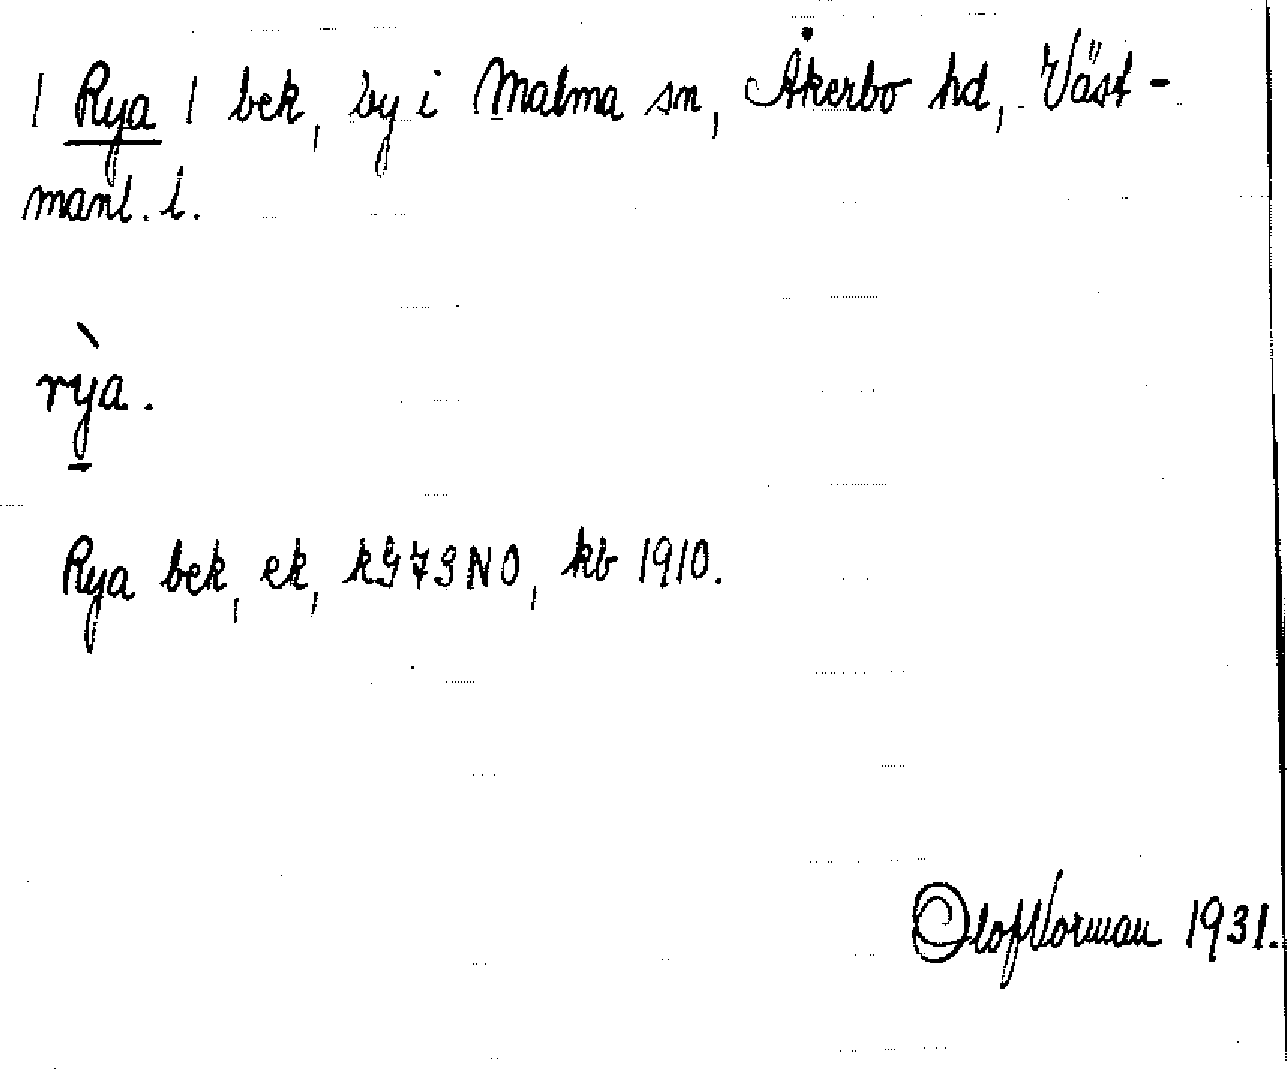 | Rya | bek, by i Malma sn, Åkerbo hd, Väst-
manl. l.
rỳa.
Rya bek, ek, kG73NO, kb 1910.
Olof Norman 1931.